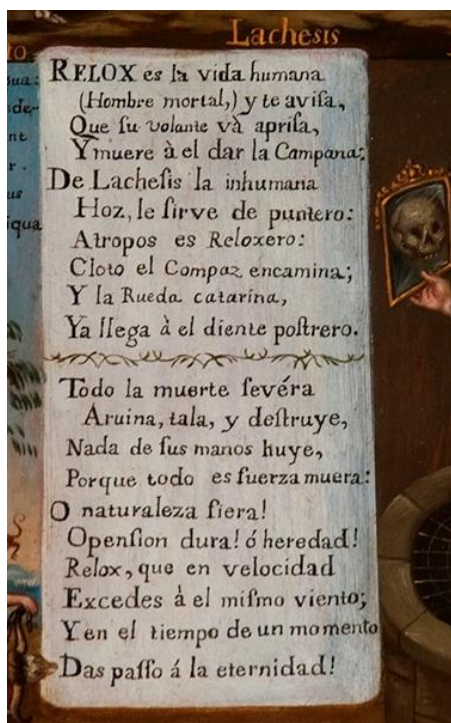 Lachesis
RELOX es la vida humana
(Hombre mortal,) y te aviſa,
Que ſu volante và apriſa,
Y muere à el dar la Campana:
De Lacheſis la inhumana
Hoz, le ſirve de puntero:
Atropos es Reloxero:
Cloto el Compaz encamina;
Y la Rueda catarina,
Ya llega à el diente poſtrero.
Todo la muerte ſevéra
Aruina, tala, y deſtruye,
Nada de ſus manos huye,
Porque todo es fuerza muera:
O naturaleza fiera!
O penſion dura! ó heredad!
Relox, que en velocidad
Excedes à el miſmo viento;
Y en el tiempo de un momento
Das paſſo á la eternidad!